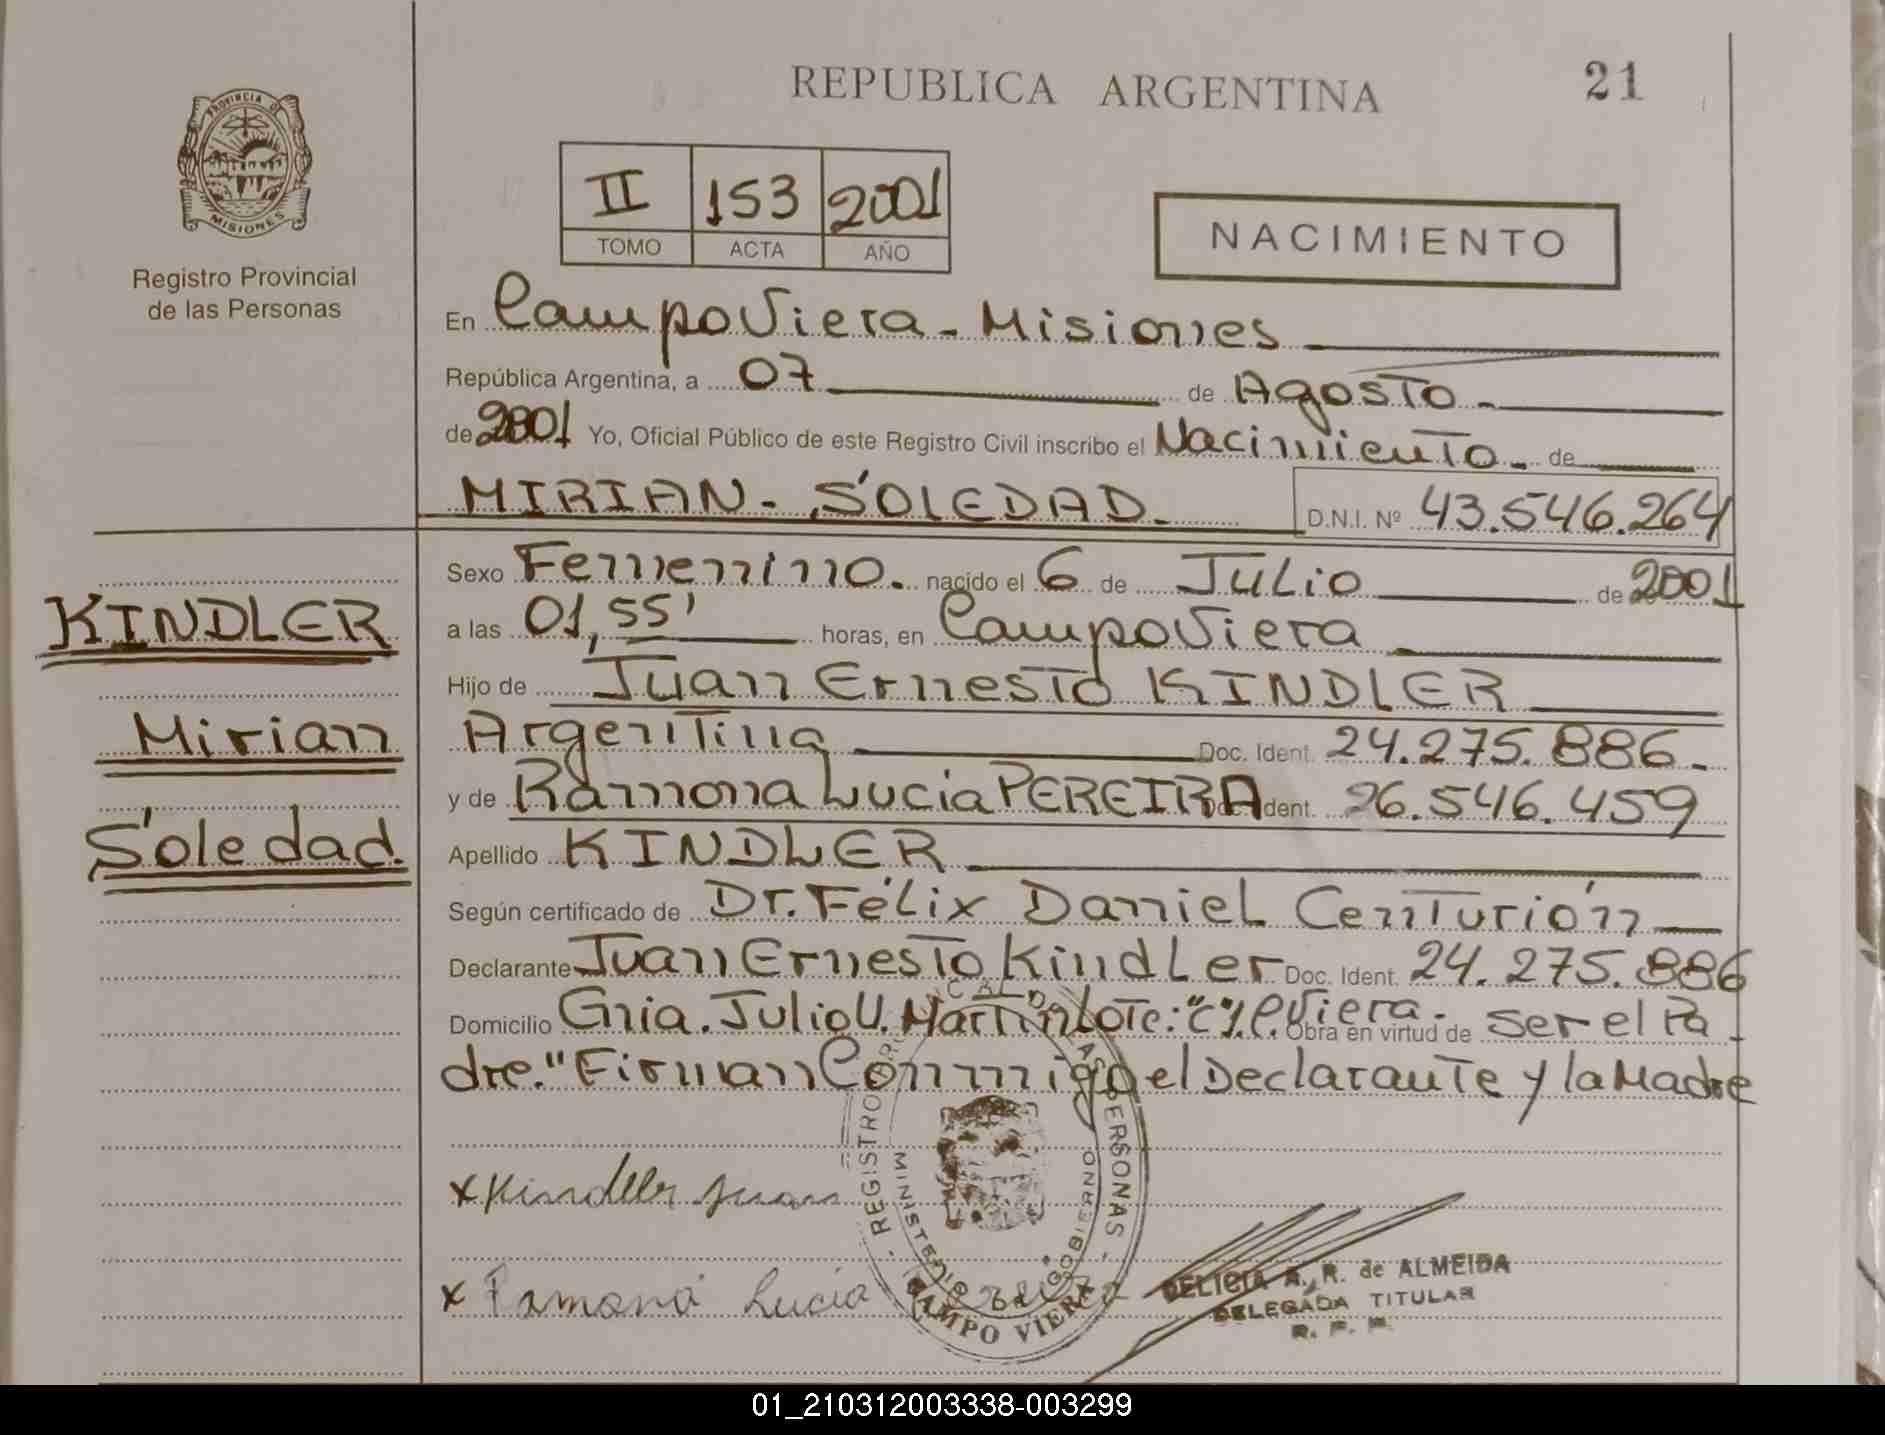 REPUBLICA ARGENTINA
21
PROVINCIA D
MISIONES
Registro Provincial
de las Personas
II 153 2001
TOMO ACTA AÑO
NACIMIENTO
En Campo Viera - Misiones
República Argentina, a 07 de Agosto -
de 2001 Yo, Oficial Público de este Registro Civil inscribo el Nacimiento - de
MIRIAN - SOLEDAD - D.N.I. Nº 43.546.264
KINDLER
Mirian
Soledad.
Sexo Femenino. nacido el 6 de Julio de 2001
a las 01,55' horas, en Campo Viera
Hijo de Juan Ernesto KINDLER
Argentina Doc. Ident. 24.275.886 -
y de Ramona Lucia PEREIRA Doc. Ident. 26.546.459
Apellido KINDLER
Según certificado de Dr. Félix Daniel Centurión
Declarante Juan Ernesto Kindler Doc. Ident. 24.275.886
Domicilio Gnia. Julio U. Martin Lote: "C", C. Viera. Obra en virtud de ser el Pa -
dre." Firman Conmigo el Declarante y la Madre
x Kindler Juan
x Ramona Lucia
REGISTRO PERSONAS -
MINISTERIO GOBIERNO
CAMPO VIERA
DELICIA A. R. de ALMEIDA
DELEGADA TITULAR
R. P. P.
01_210312003338-003299